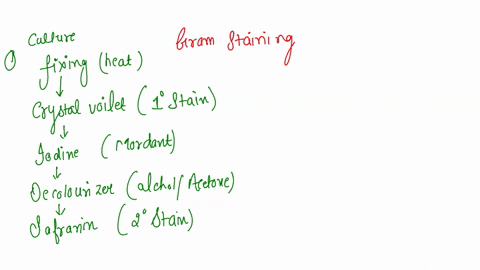 Gram Staining
Culture
① fixing (heat)
↓
Crystal voilet (1° Stain)
↓
Iodine (Mordant)
↓
Decolourizer (alchol/Acetone)
↓
Safranin (2° Stain)